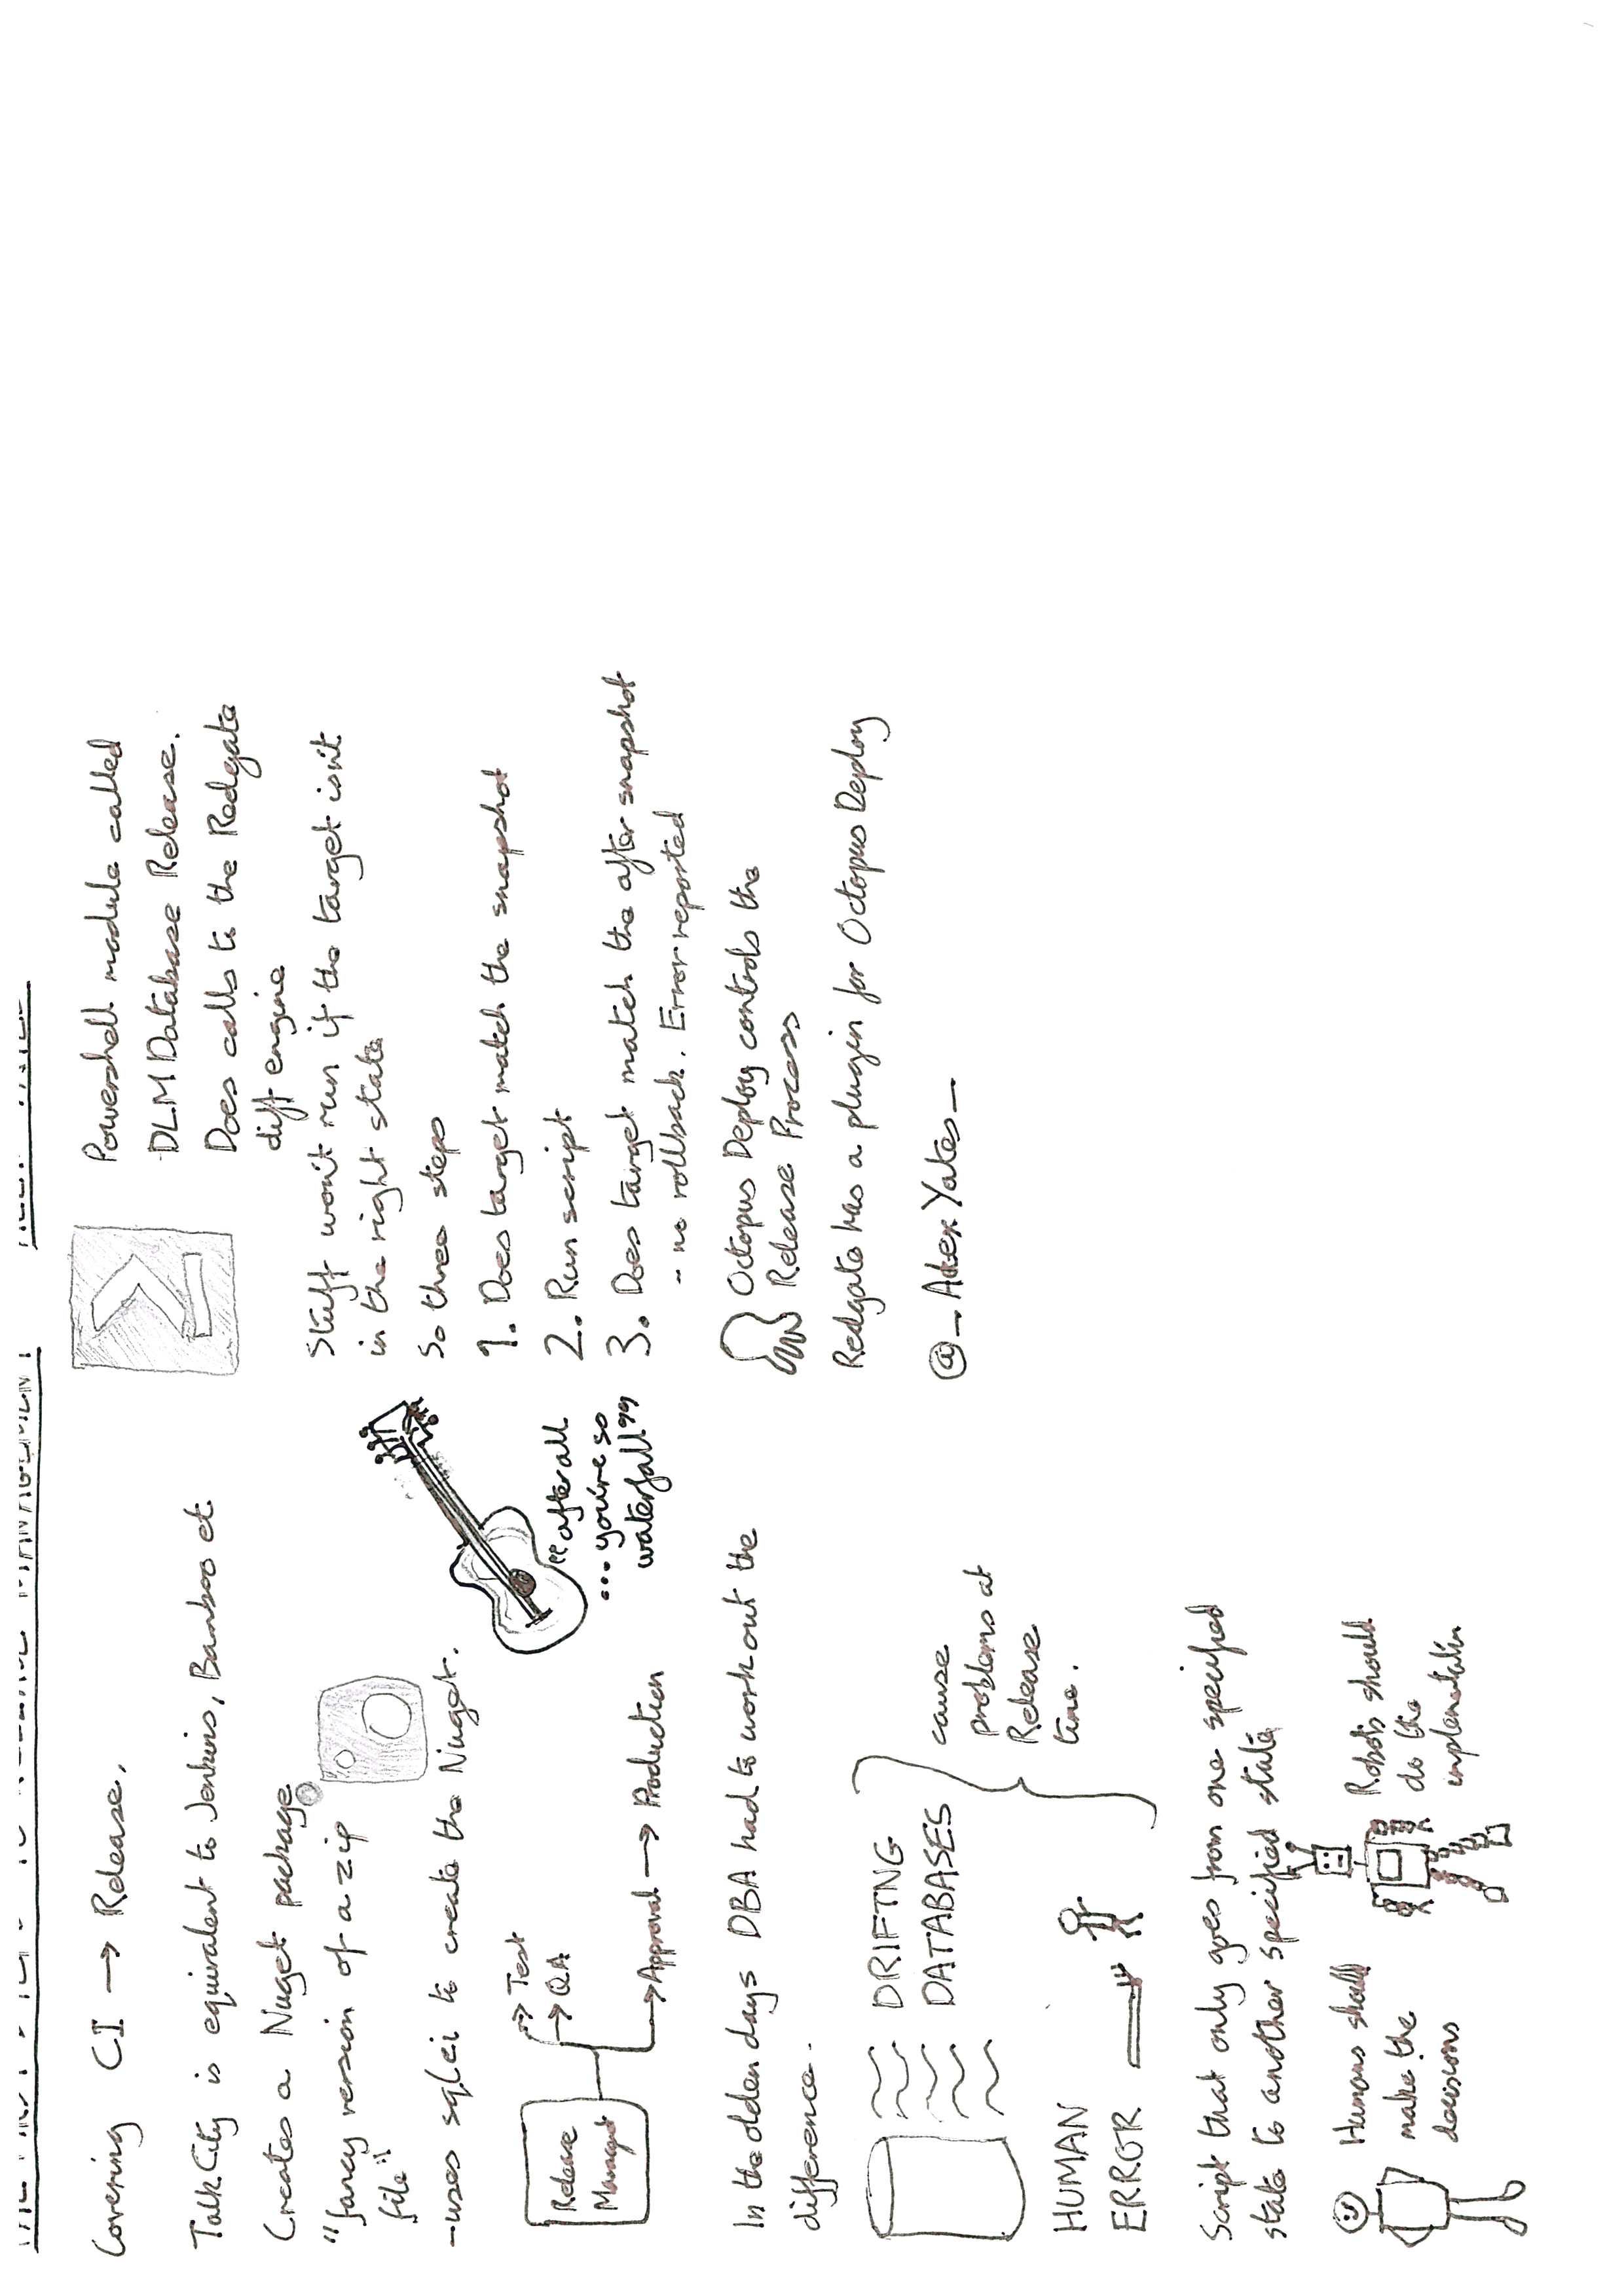 Covering CI → Release.
TalkCity is equivalent to Jenkins, Bamboo et
Creates a Nuget package
"fancy version of a zip
file"
- uses sqlci to create the Nuget.
"after all
... you're so
waterfall"
Release
Manager
→ Test
→ QA
→ Approval → Production
In the olden days DBA had to work out the
difference.
DRIFTNG
DATABASES
HUMAN
ERROR
cause
problems at
Release
time.
Script that only goes from one specified
state to another specified state
Humans should
make the
decisions
Robots should
do the
Powershell module called
DLM Database Release.
Does calls to the Redgate
diff engine
Stuff won't run if the target isn't
in the right state
So three steps
1. Does target match the snapshot
2. Run script
3. Does target match the after snapshot
- no rollback. Error reported
Octopus Deploy controls the
Release Process
Redgate has a plugin for Octopus Deploy
@_AlexYates_